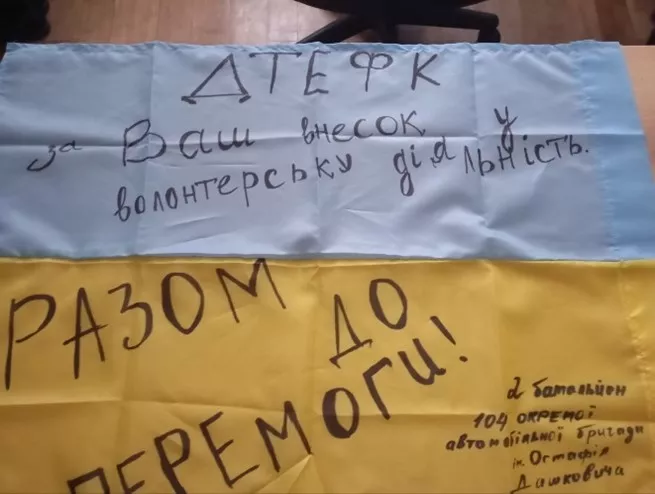 ДТЕФК
за Ваш внесок у
волонтерську діяльність.
РАЗОМ ДО
ПЕРЕМОГИ!
2 батальйон
104 окремої
автомобільної бригади
ім. Остафія
Дашковича